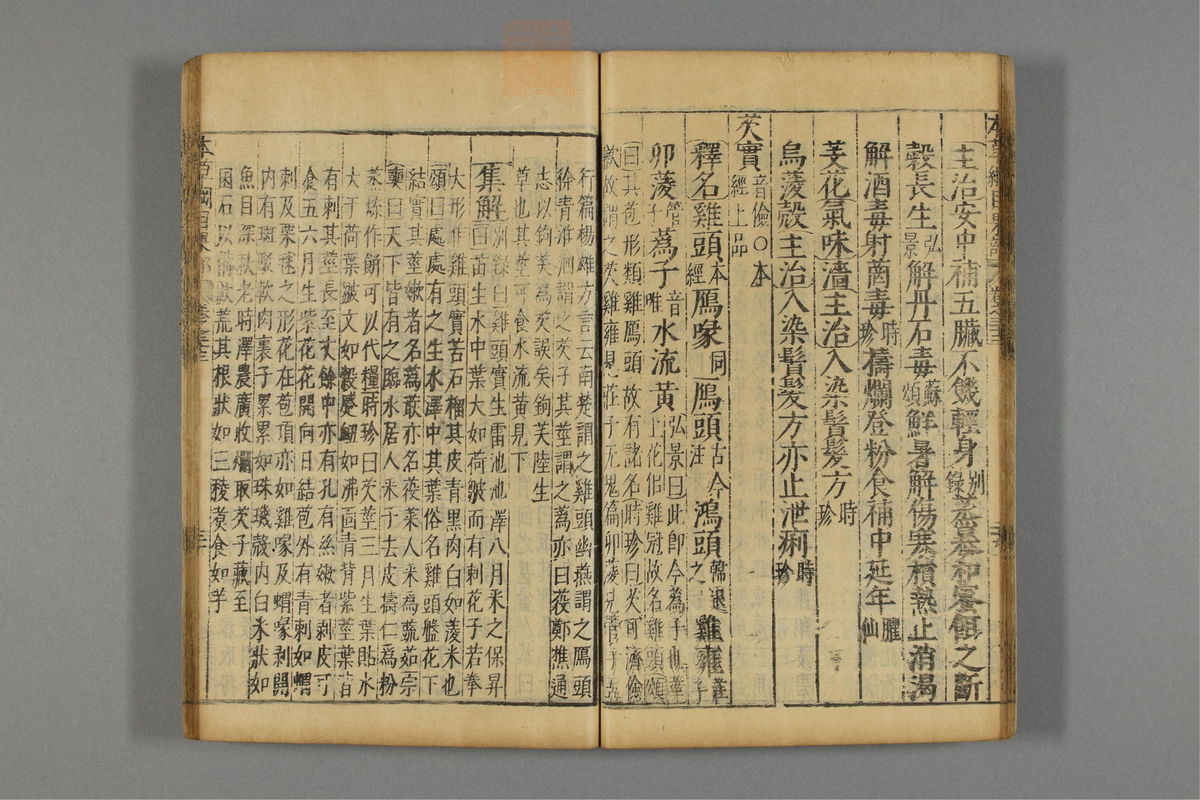 主治安中補五臟不飢輕身別錄蒸暴和蜜餌之斷
穀長生弘景解丹石毒蘇頌鮮者解傷寒積熱止消渴
解酒毒射菵毒時珍擣爛登粉食補中延年臞仙
芰花氣味濇主治入染鬚髮方時珍
烏菱殼主治入染鬚髮方亦止泄痢時珍
芡實音儉○本經上品
釋名雞頭本經鴈喙同鴈頭古今注鴻頭韓退之雞雍莊子
卯菱管子蔿子音唯水流黃弘景曰此即今蔿子也莖上花似雞冠故名雞頭頌
曰其苞形類雞鴈頭故有諸名時珍曰芡可濟儉
歉故謂之芡雞雍見莊子无鬼篇卯菱見管子五
行篇楊雄方言云南楚謂之雞頭幽燕謂之鴈頭
徐青淮泗謂之芡子其莖謂之蔿亦曰䓈鄭樵通
志以鉤芺為芡誤矣鉤芺陸生
草也其莖可食水流黃見下
集解別錄曰雞頭實生雷池池澤八月采之保昇
曰苗生水中葉大如荷皺而有刺花子若拳
大形似雞頭實若石榴其皮青黑肉白如菱米也
頌曰處處有之生水澤中其葉俗名雞頭盤花下
結實其莖嫩者名蔿䓈亦名䓈菜人采為蔬茹宗
奭曰天下皆有之臨水居人采子去皮擣仁為粉
蒸煠作餅可以代糧時珍曰芡莖三月生葉貼水
大于荷葉皺文如縠蹙衄如沸面青背紫莖葉皆
有刺其莖長至丈餘中亦有孔有絲嫩者剥皮可
食五六月生紫花花開向日結苞外有青刺如蝟
刺及栗毬之形花在苞頂亦如雞喙及蝟喙剥開
內有斑駁軟肉裹子累累如珠璣殼內白米狀如
魚目深秋老時澤農廣收爛取芡子藏至
囷石以備歉荒其根狀如三稜煑食如芋